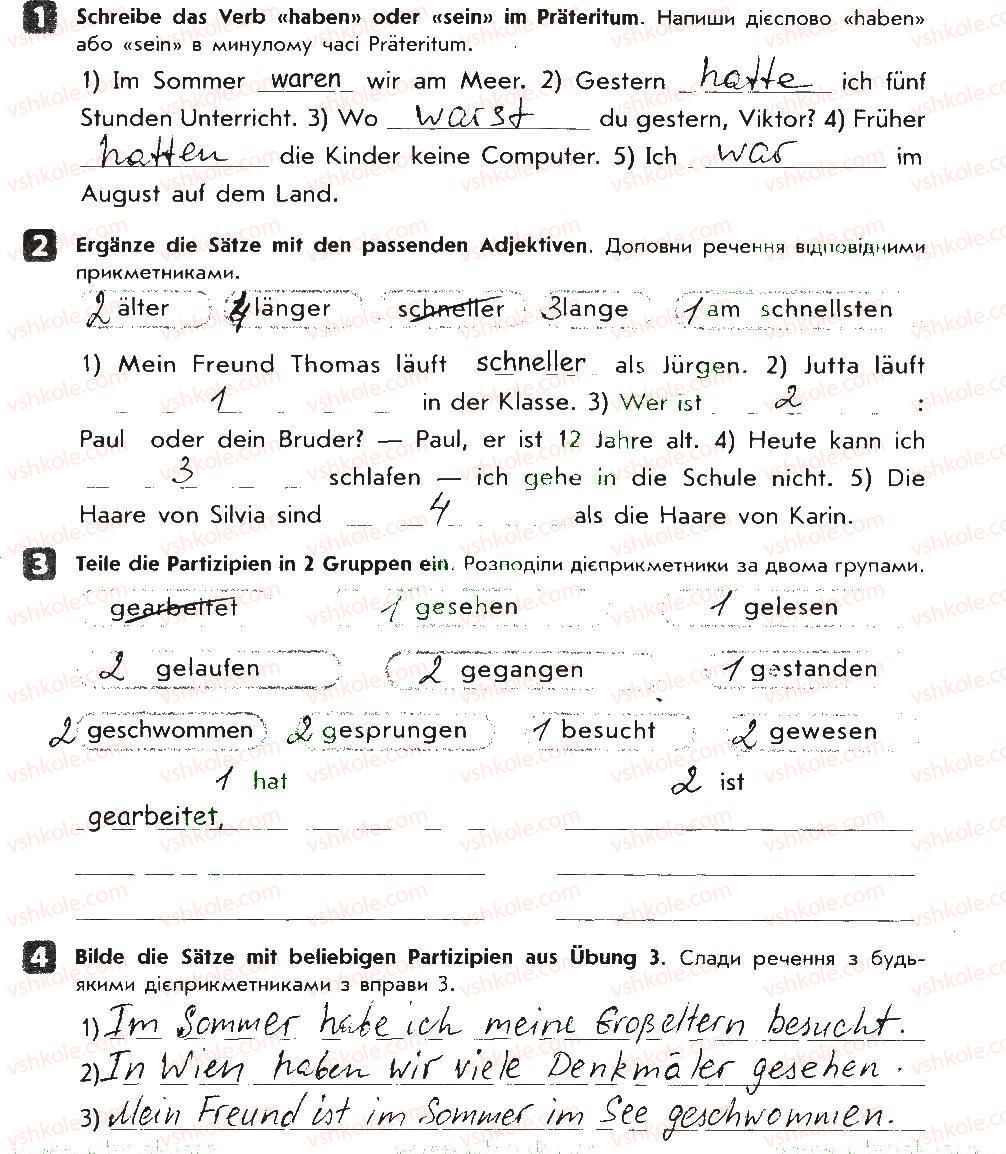 1 Schreibe das Verb «haben» oder «sein» im Präteritum. Напиши дієслово «haben»
або «sein» в минулому часі Präteritum.
1) Im Sommer waren wir am Meer. 2) Gestern hatte ich fünf
Stunden Unterricht. 3) Wo warst du gestern, Viktor? 4) Früher
hatten die Kinder keine Computer. 5) Ich war im
August auf dem Land.
2 Ergänze die Sätze mit den passenden Adjektiven. Доповни речення відповідними
прикметниками.
2 älter 4 länger schneller 3 lange 1 am schnellsten
1) Mein Freund Thomas läuft schneller als Jürgen. 2) Jutta läuft
1 in der Klasse. 3) Wer ist 2 :
Paul oder dein Bruder? — Paul, er ist 12 Jahre alt. 4) Heute kann ich
3 schlafen — ich gehe in die Schule nicht. 5) Die
Haare von Silvia sind 4 als die Haare von Karin.
3 Teile die Partizipien in 2 Gruppen ein. Розподіли дієприкметники за двома групами.
gearbeitet 1 gesehen 1 gelesen
2 gelaufen 2 gegangen 1 gestanden
2 geschwommen 2 gesprungen 1 besucht 2 gewesen
1 hat 2 ist
gearbeitet,
4 Bilde die Sätze mit beliebigen Partizipien aus Übung 3. Слади речення з будь-
якими дієприкметниками з вправи 3.
1) Im Sommer habe ich meine Großeltern besucht.
2) In Wien haben wir viele Denkmäler gesehen.
3) Mein Freund ist im Sommer im See geschwommen.